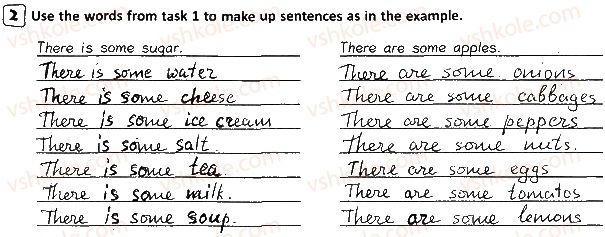 2 Use the words from task 1 to make up sentences as in the example.
There is some sugar.
There is some water
There is some cheese
There is some ice cream
There is some salt
There is some tea.
There is some milk.
There is some soup.
There are some apples.
There are some onions
There are some cabbages
There are some peppers
There are some nuts.
There are some eggs
There are some tomatos
There are some lemons